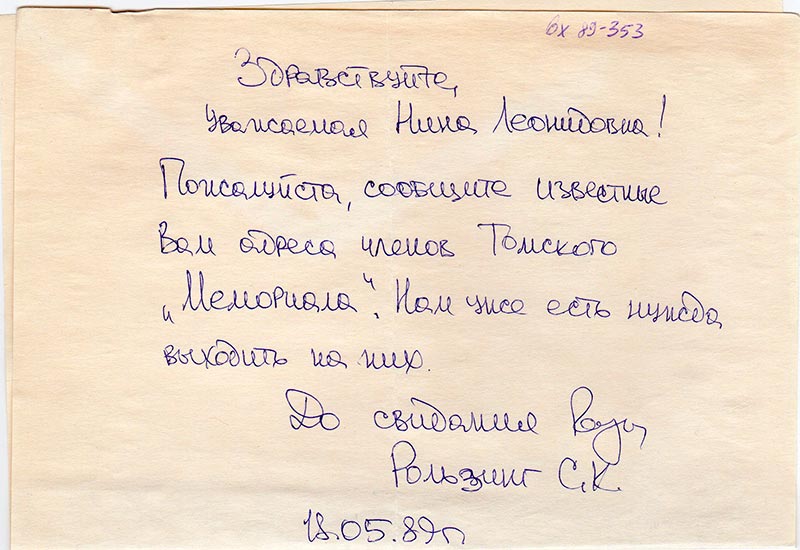 вх 89-353
Здравствуйте,
уважаемая Нина Леонидовна!
Пожалуйста, сообщите известные
Вам адреса членов Томского
„Мемориала". Нам уже есть нужда
выходить на них.
До свидания
Рользинг С.К.
18.05.89г